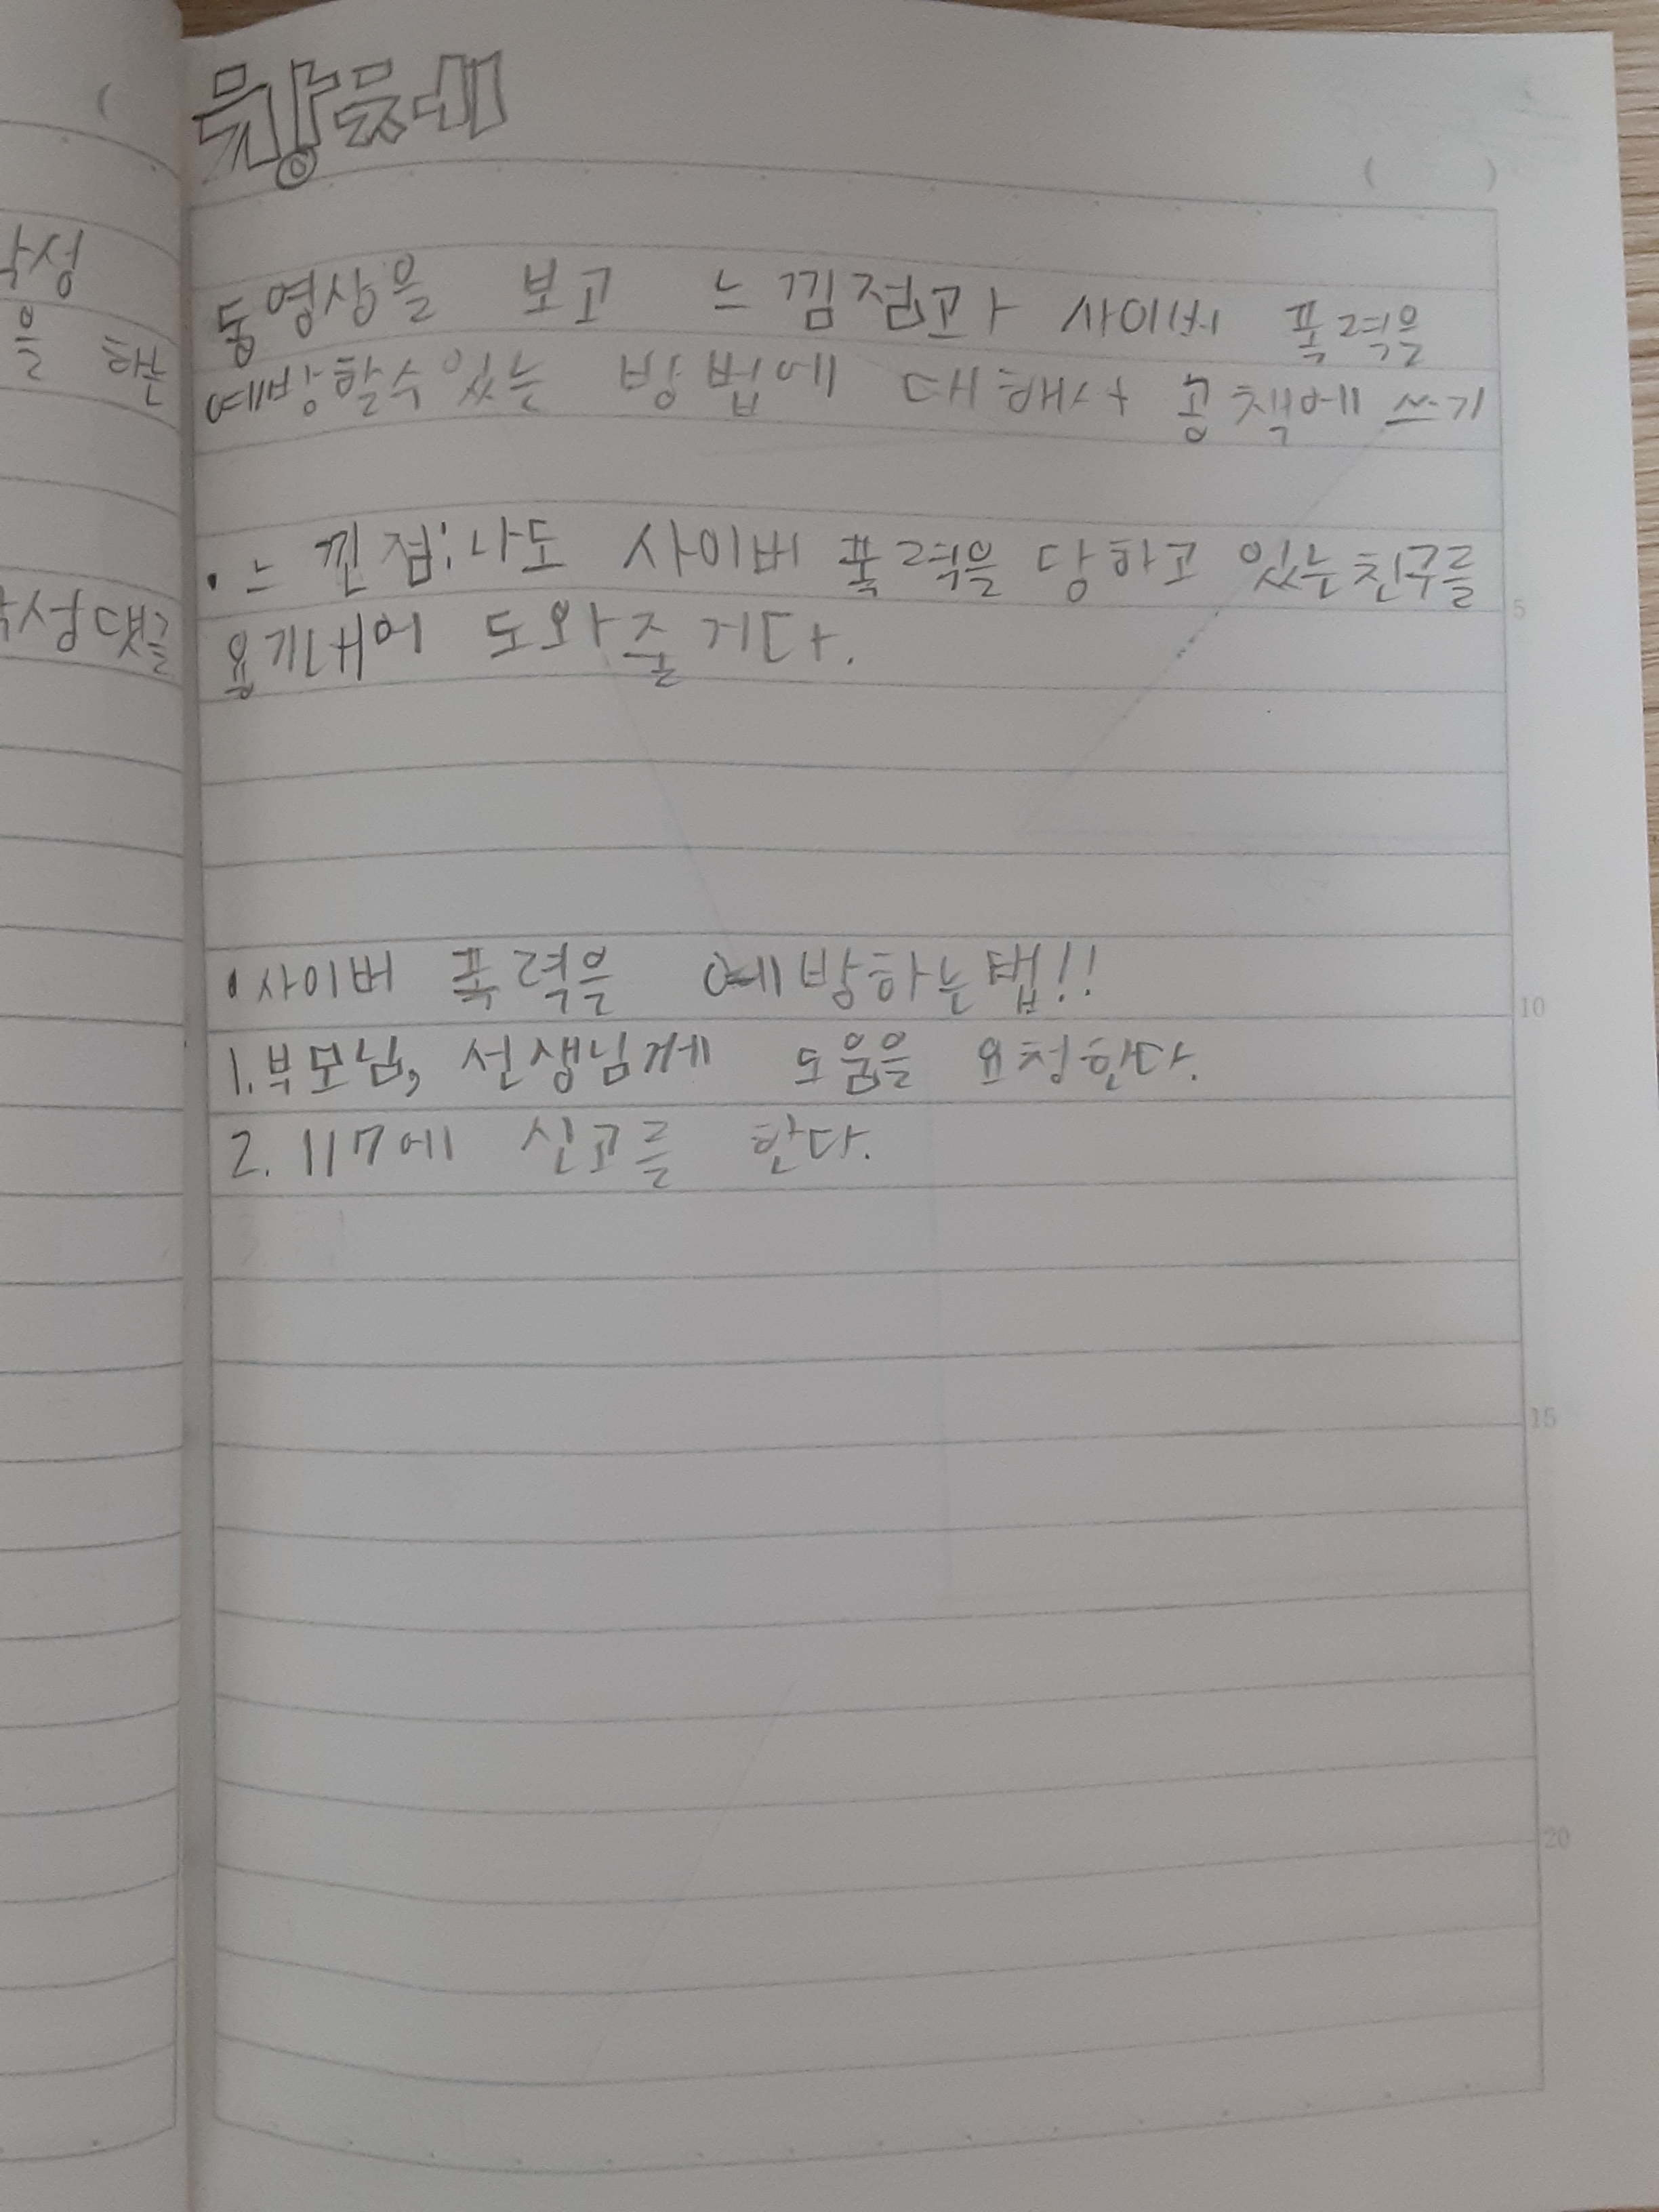 성
을
성댓글
동영상을 보고 느낌점과 사이버 폭력을
예방할수있는 방법에 대해서 공책에 쓰기
• 느낀점:나도 사이버 폭력을 당하고 있는친구를
용기내어 도와줄거다.
• 사이버 폭력을 예방하는법!!
1. 부모님, 선생님께 도움을 요청한다.
2. 117에 신고를 한다.
5
10
15
20